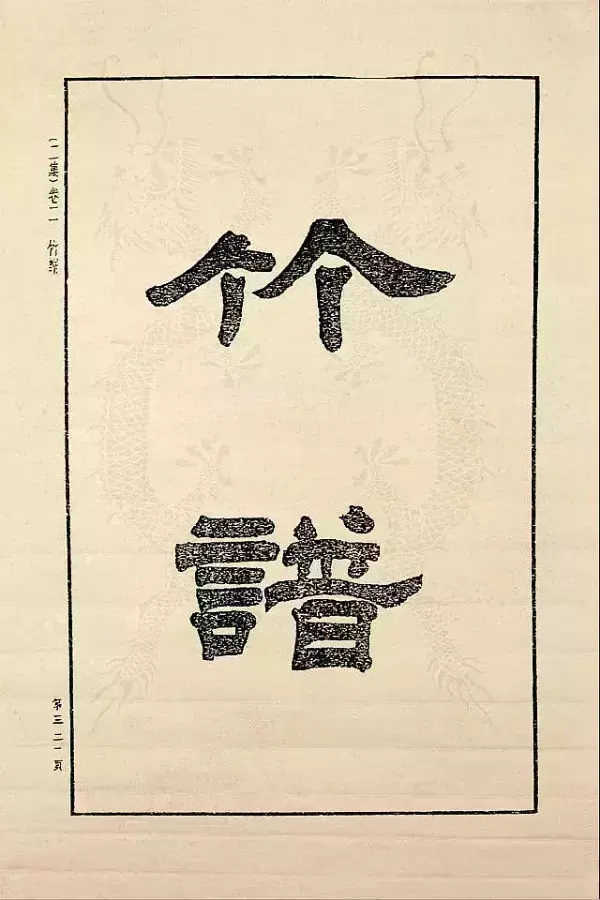 竹譜
(二集)卷二 竹譜
第三二一頁